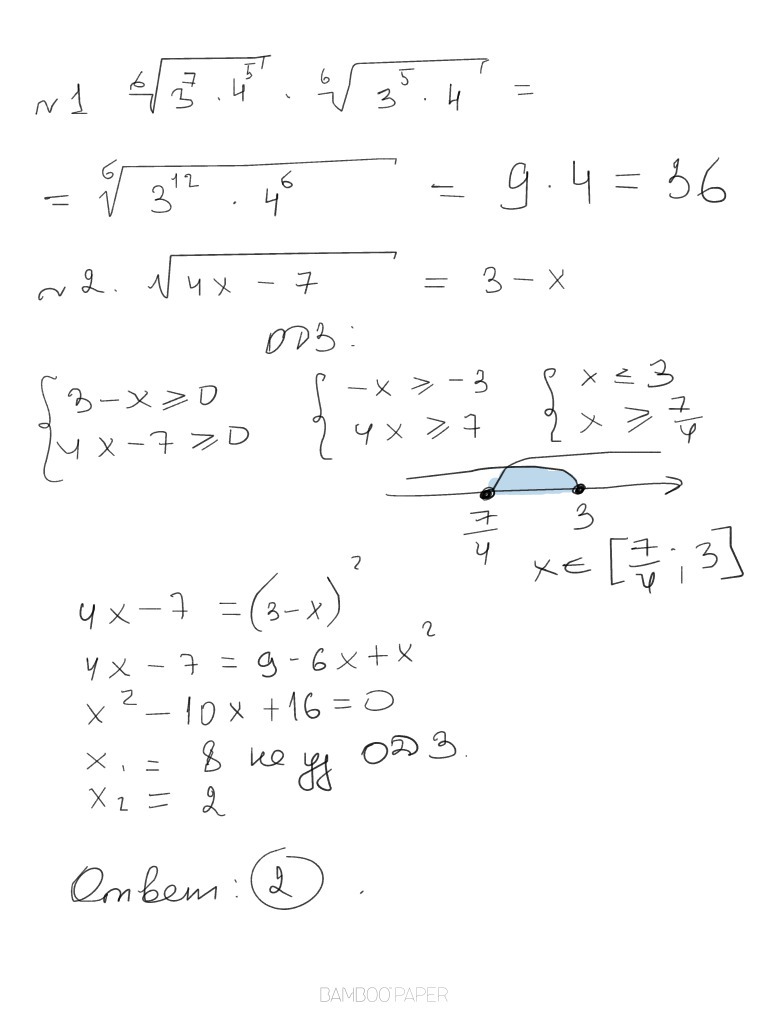 №1 ⁶√(3⁷ · 4⁵) · ⁶√(3⁵ · 4) =
= ⁶√(3¹² · 4⁶) = 9 · 4 = 36
№2. √(4x − 7) = 3 − x
ОДЗ:
{3 − x ≥ 0 {−x ≥ −3 {x ≤ 3
{4x − 7 ≥ 0 {4x ≥ 7 {x ≥ 7/4
7/4 3
x ∈ [7/4; 3]
4x − 7 = (3 − x)²
4x − 7 = 9 − 6x + x²
x² − 10x + 16 = 0
x₁ = 8 не уд ОДЗ.
x₂ = 2
Ответ: 2.
BAMBOO PAPER